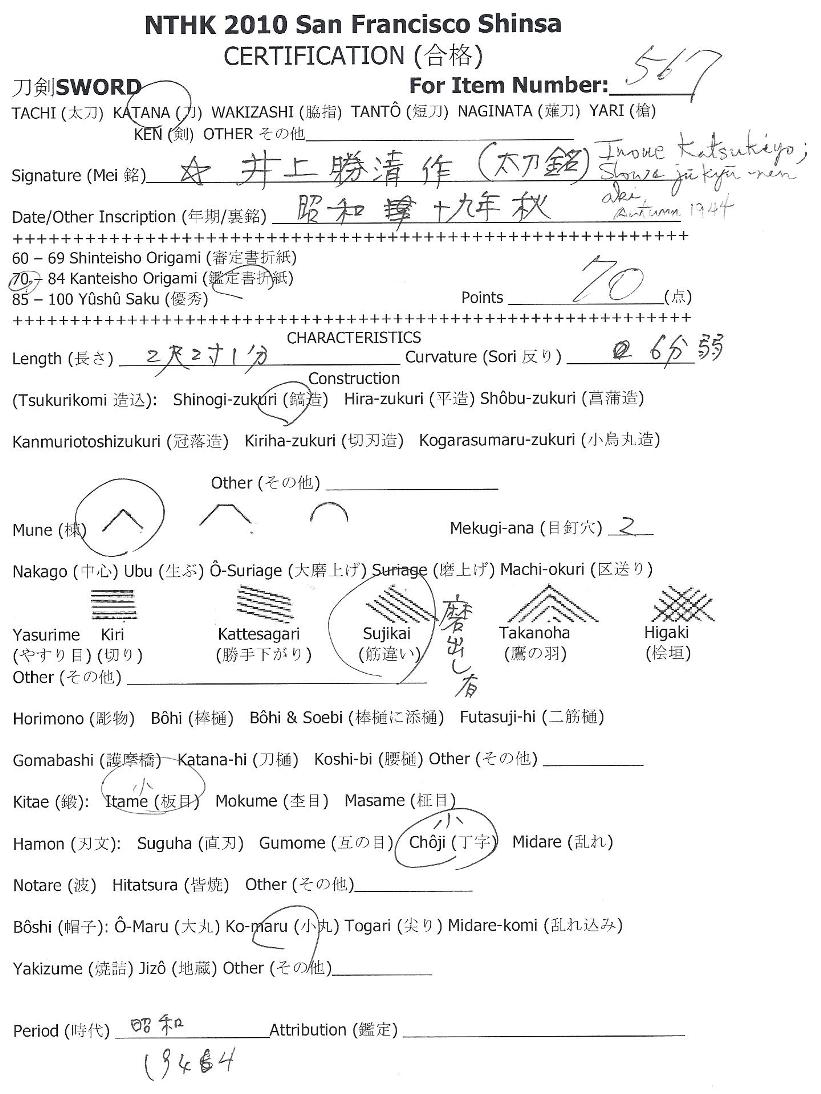 NTHK 2010 San Francisco Shinsa
CERTIFICATION (合格)
刀剣SWORD For Item Number: 567
TACHI (太刀) KATANA (刀) WAKIZASHI (脇指) TANTÔ (短刀) NAGINATA (薙刀) YARI (槍)
KEN (剣) OTHER その他
Signature (Mei 銘) ☆ 井上勝清作 (太刀銘) Inoue Katsukiyo;
Showa jūkyū-nen
aki
Autumn 1944
Date/Other Inscription (年期/裏銘) 昭和 十九年秋
++++++++++++++++++++++++++++++++++++++++++++++++++++++++
60 – 69 Shinteisho Origami (審定書折紙)
70 – 84 Kanteisho Origami (鑑定書折紙)
85 – 100 Yûshû Saku (優秀) Points 70 (点)
++++++++++++++++++++++++++++++++++++++++++++++++++++++++
CHARACTERISTICS
Length (長さ) 2尺2寸1分 Curvature (Sori 反り) 6分弱
Construction
(Tsukurikomi 造込): Shinogi-zukuri (鎬造) Hira-zukuri (平造) Shôbu-zukuri (菖蒲造)
Kanmuriotoshizukuri (冠落造) Kiriha-zukuri (切刃造) Kogarasumaru-zukuri (小烏丸造)
Other (その他)
Mune (棟) Mekugi-ana (目釘穴) 2
Nakago (中心) Ubu (生ぶ) Ô-Suriage (大磨上げ) Suriage (磨上げ) Machi-okuri (区送り)
Yasurime Kiri Kattesagari Sujikai Takanoha Higaki
(やすり目) (切り) (勝手下がり) (筋違い) (鷹の羽) (桧垣)
磨出し有
Other (その他)
Horimono (彫物) Bôhi (棒樋) Bôhi & Soebi (棒樋に添樋) Futasuji-hi (二筋樋)
Gomabashi (護摩橋) Katana-hi (刀樋) Koshi-bi (腰樋) Other (その他)
小
Kitae (鍛): Itame (板目) Mokume (杢目) Masame (柾目)
小
Hamon (刃文): Suguha (直刃) Gumome (互の目) Chôji (丁字) Midare (乱れ)
Notare (波) Hitatsura (皆焼) Other (その他)
Bôshi (帽子): Ô-Maru (大丸) Ko-maru (小丸) Togari (尖り) Midare-komi (乱れ込み)
Yakizume (焼詰) Jizô (地蔵) Other (その他)
Period (時代) 昭和 Attribution (鑑定)
(1944